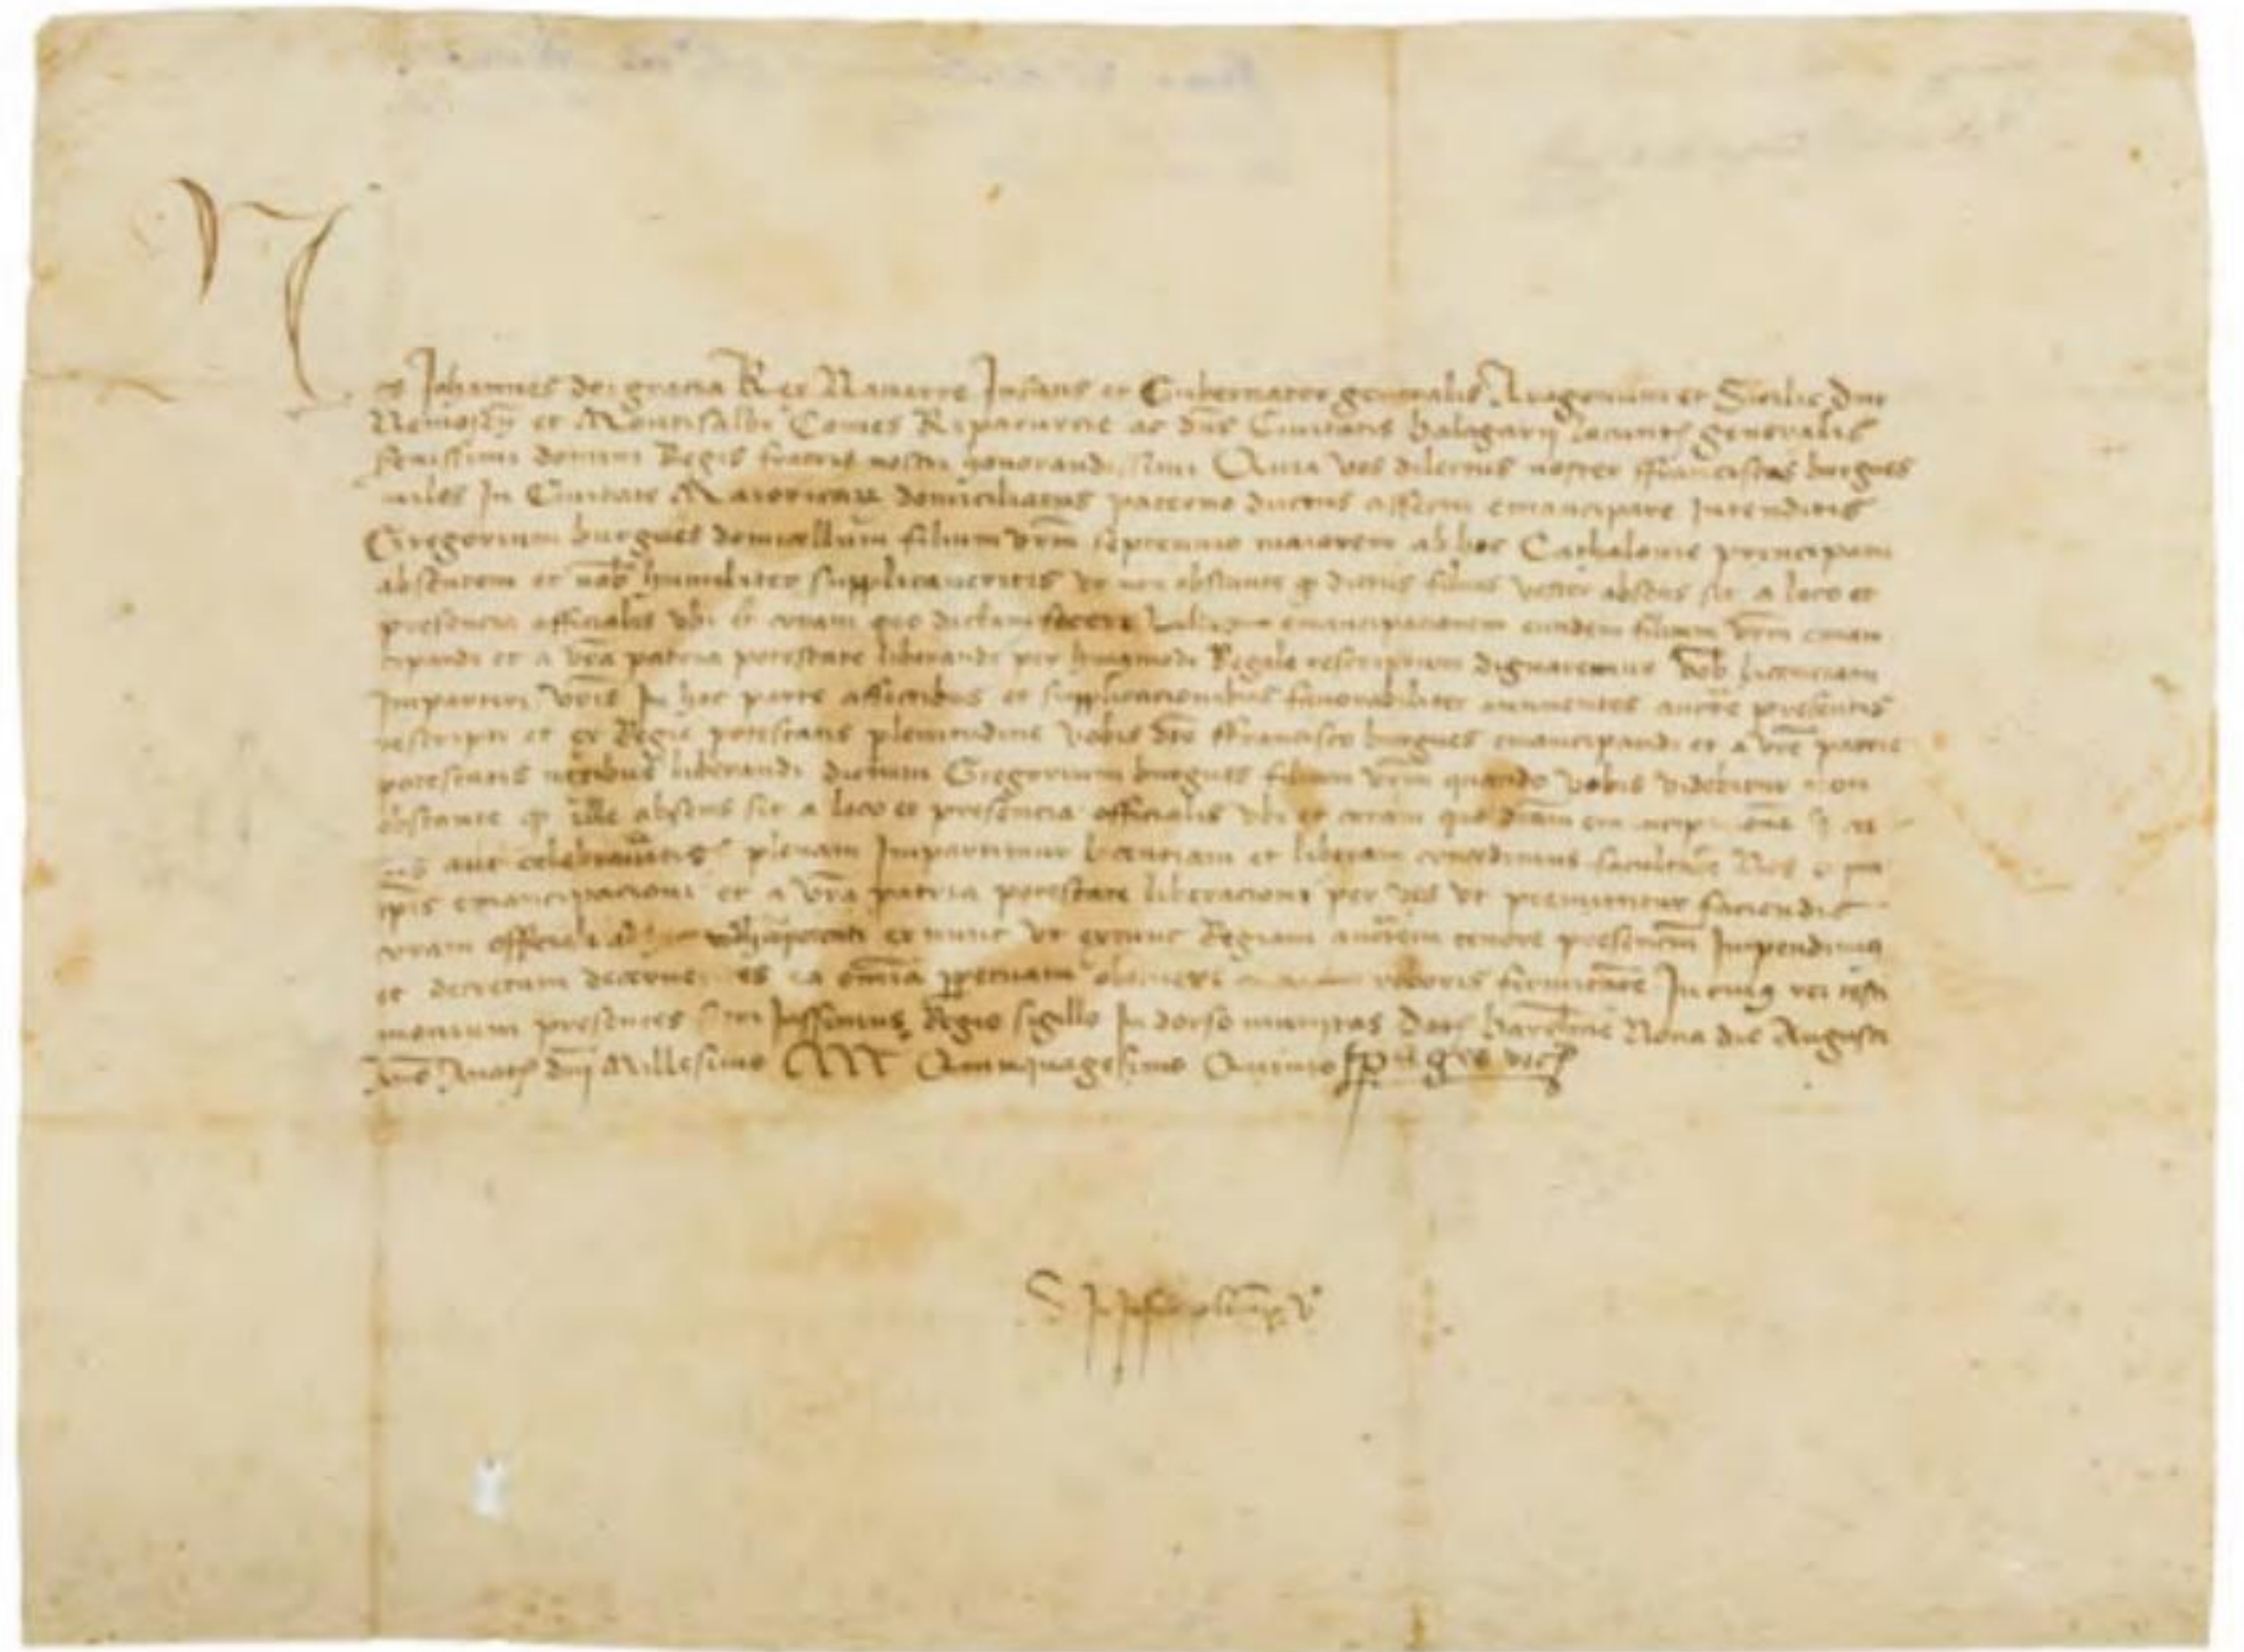 Nos Johannes dei gracia Rex Navarre Infans et Gubernator generalis Aragonum et Sicilie dux
Nemosen et Montisalbi Comes Ripacurcie ac dns Civitatis balagarii locumtens generalis
serenissimi domini Regis fratris nostri honorandissimi Quia vos dilectus noster ffranciscus burgues
miles In Civitate Maioricarum domiciliatus paterno ductus affectu emancipare Intenditis
Gregorium burgues domicellum filium vrm septennio maiorem ab hoc Cathalonie principatu
absentem et nob humiliter supplicaveritis ut non obstante q dictus filius vester absens sit a loco et
presencia officialis ubi et coram quo dictam emancipacionem eundem filium vrm eman
cipandi et a vra patria potestate liberandi per huiusmodi Regale rescriptum dignaremur vob licenciam
Impartiri vris In hac parte affectibus et supplicacionibus favorabiliter annuentes aucte presentis
rescripti et ex Regie potestatis plenitudine vobis dco ffrancisco burgues emancipandi et a vre patrie
potestatis nexibus liberandi dictum Gregorium burgues filium vrm quando vobis videbitur non
obstante q ille absens sit a loco et presencia officialis ubi et coram quo dictam
aut celebraveritis plenam Impartimur licenciam et liberam concedimus facultatem Nos
ipis emancipacioni et a vra patria potestate liberacioni per vos ut premittitur faciendis
coram ex nunc ut extunc Regiam auctem tenore presencium Impendimus
et decretum ea omia ppetuam obtineri roboris firmitatem In cuius rei testi
monium presentes Jussimus Regio sigillo In dorso munitas Dat barchnone Nona die Augusti
Anno Anatte dni Millesimo CCCC Quinquagesimo Quinto